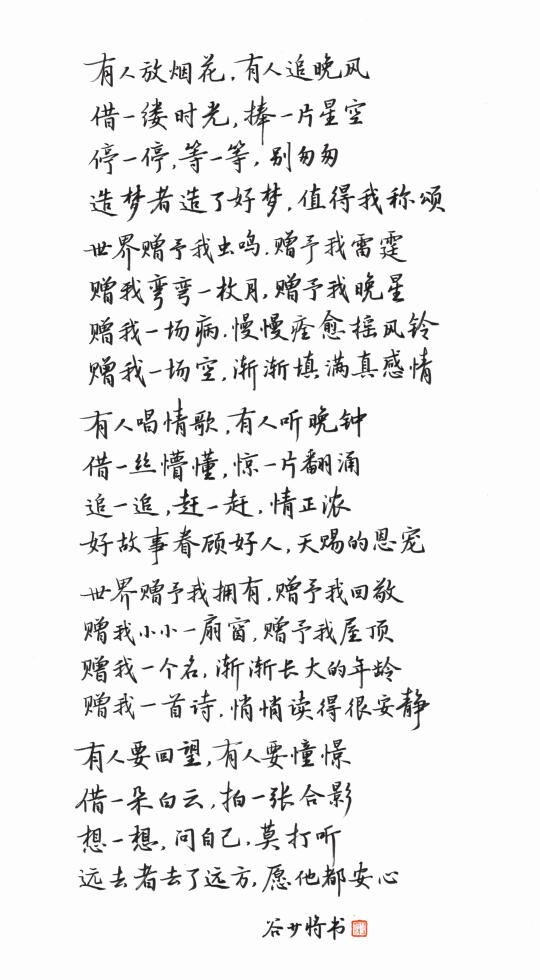 有人放烟花,有人追晚风
借一缕时光,捧一片星空
停一停,等一等,别匆匆
造梦者造了好梦,值得我称颂
世界赠予我虫鸣.赠予我雷霆
赠我弯弯一枚月,赠予我晚星
赠我一场病.慢慢痊愈摇风铃
赠我一场空,渐渐填满真感情
有人唱情歌,有人听晚钟
借一丝懵懂,惊一片翻涌
追一追,赶一赶.情正浓
好故事眷顾好人,天赐的恩宠
世界赠予我拥有,赠予我回敬
赠我小小一扇窗,赠予我屋顶
赠我一个名,渐渐长大的年龄
赠我一首诗.悄悄读得很安静
有人要回望,有人要憧憬
借一朵白云,拍一张合影
想一想,问自己.莫打听
远去者去了远方,愿他都安心
谷廿将书